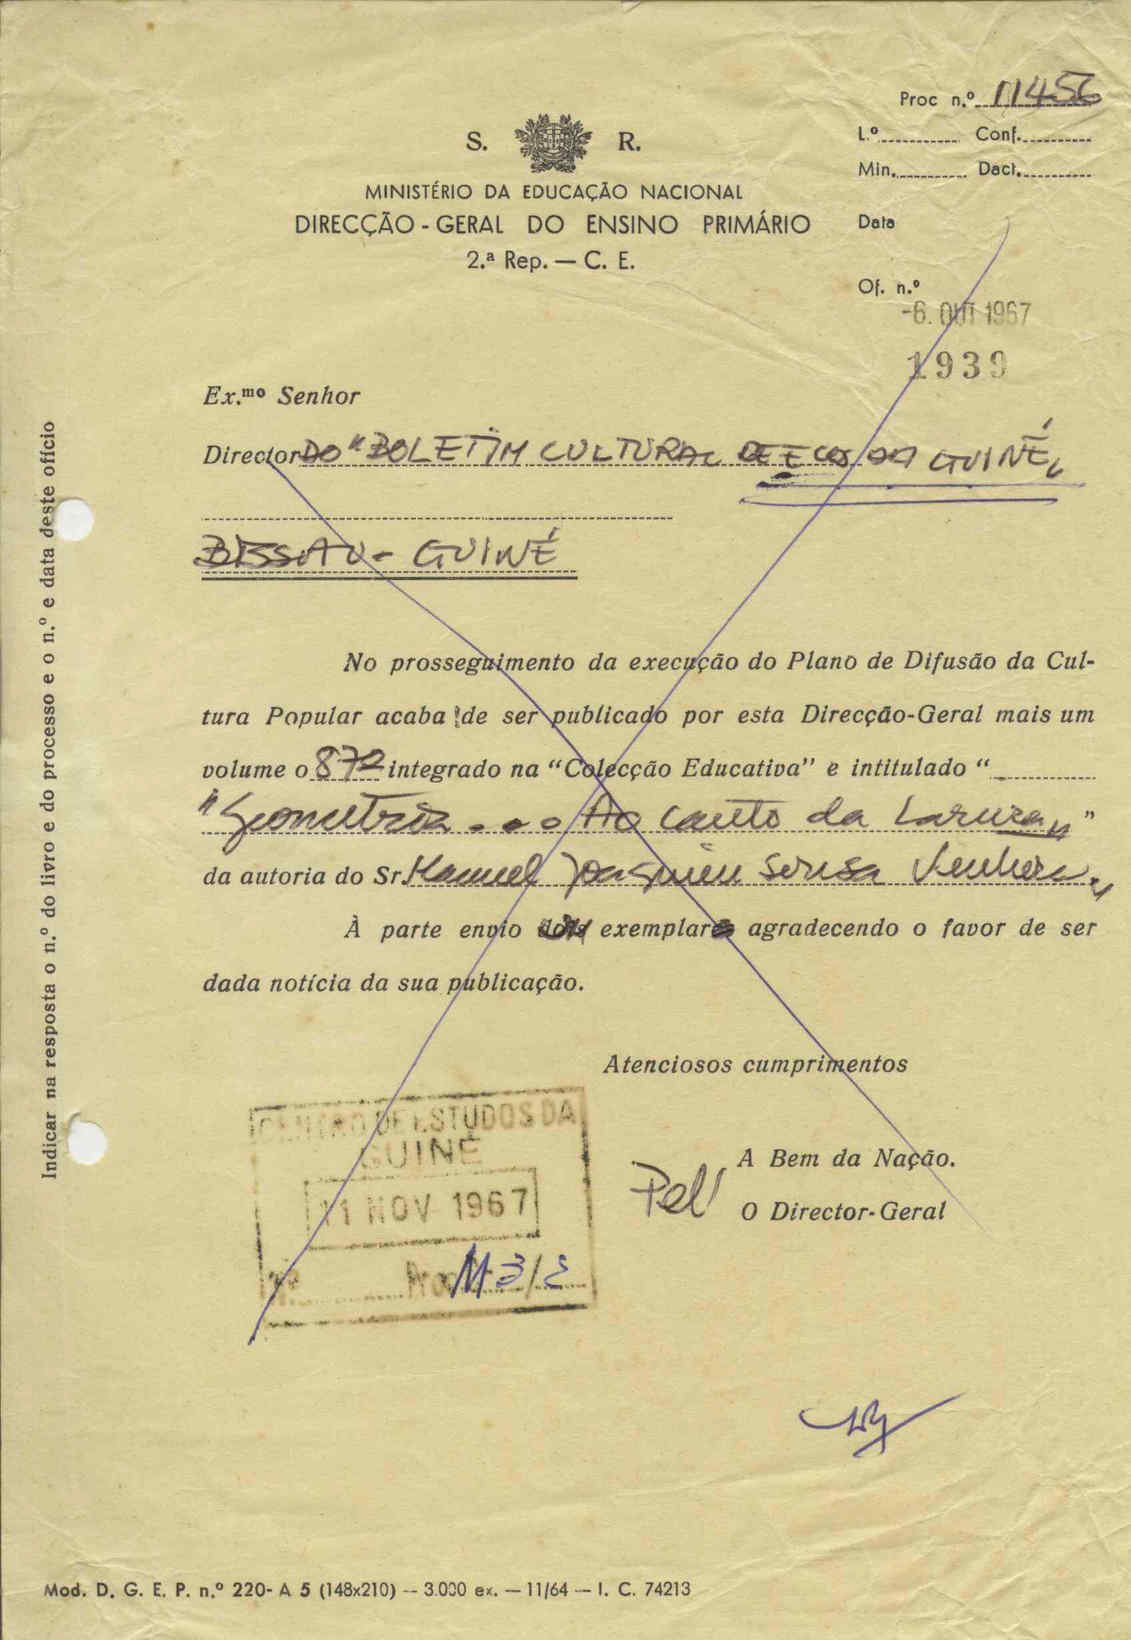 Proc n.º 11456
S. R.
L.º Conf.
Min. Dact.
MINISTÉRIO DA EDUCAÇÃO NACIONAL
DIRECÇÃO-GERAL DO ENSINO PRIMÁRIO
2.ª Rep. — C. E.
Data
Of. n.º
-6. OUT 1967
1939
Ex.mo Senhor
Director DO "BOLETIM CULTURAL DE ECOS DA GUINÉ,
BISSAU - GUINÉ
No prosseguimento da execução do Plano de Difusão da Cul-
tura Popular acaba de ser publicado por esta Direcção-Geral mais um
volume o 87º integrado na “Colecção Educativa” e intitulado “
"Geometria... Ao canto da Lareira" ”
da autoria do Sr. Manuel Joaquim Sousa
À parte envio um exemplar agradecendo o favor de ser
dada notícia da sua publicação.
Atenciosos cumprimentos
A Bem da Nação.
Pel' O Director-Geral
CENTRO DE ESTUDOS DA
GUINÉ
11 NOV 1967
Nº Proc. M 3/2
Indicar na resposta o n.º do livro e do processo e o n.º e data deste ofício
Mod. D. G. E. P. n.º 220- A 5 (148x210) — 3.000 ex. — 11/64 — I. C. 74213